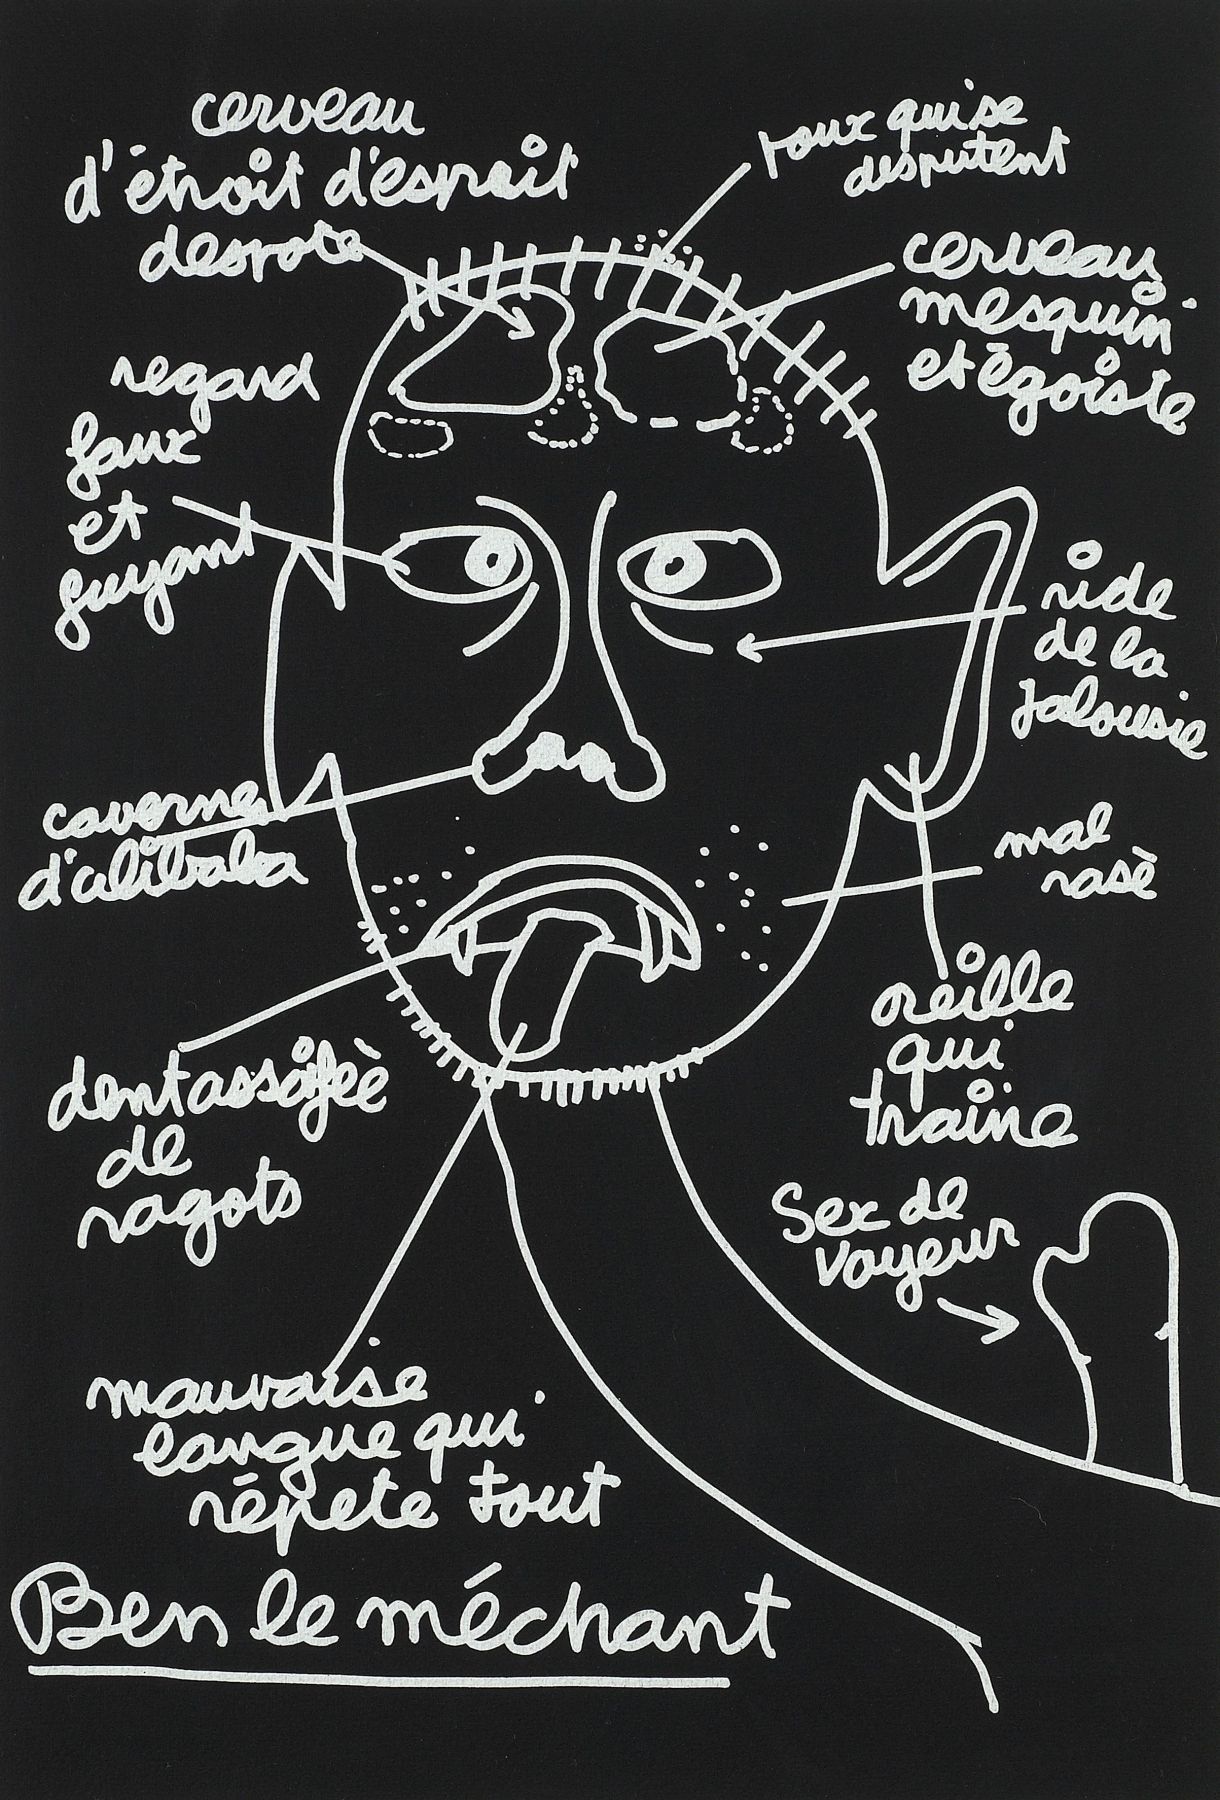 cerveau
d'étroit d'esprit
despote
poux qui se
disputent
cerveau
mesquin
et égoiste
regard
faux
et
fuyant
ride
de la
jalousie
caverne
d'alibaba
mal
rasè
oreille
qui
traine
dent assoifèè
de
ragots
Sex de
voyeur
mauvaise
langue qui
répete tout
Ben le méchant